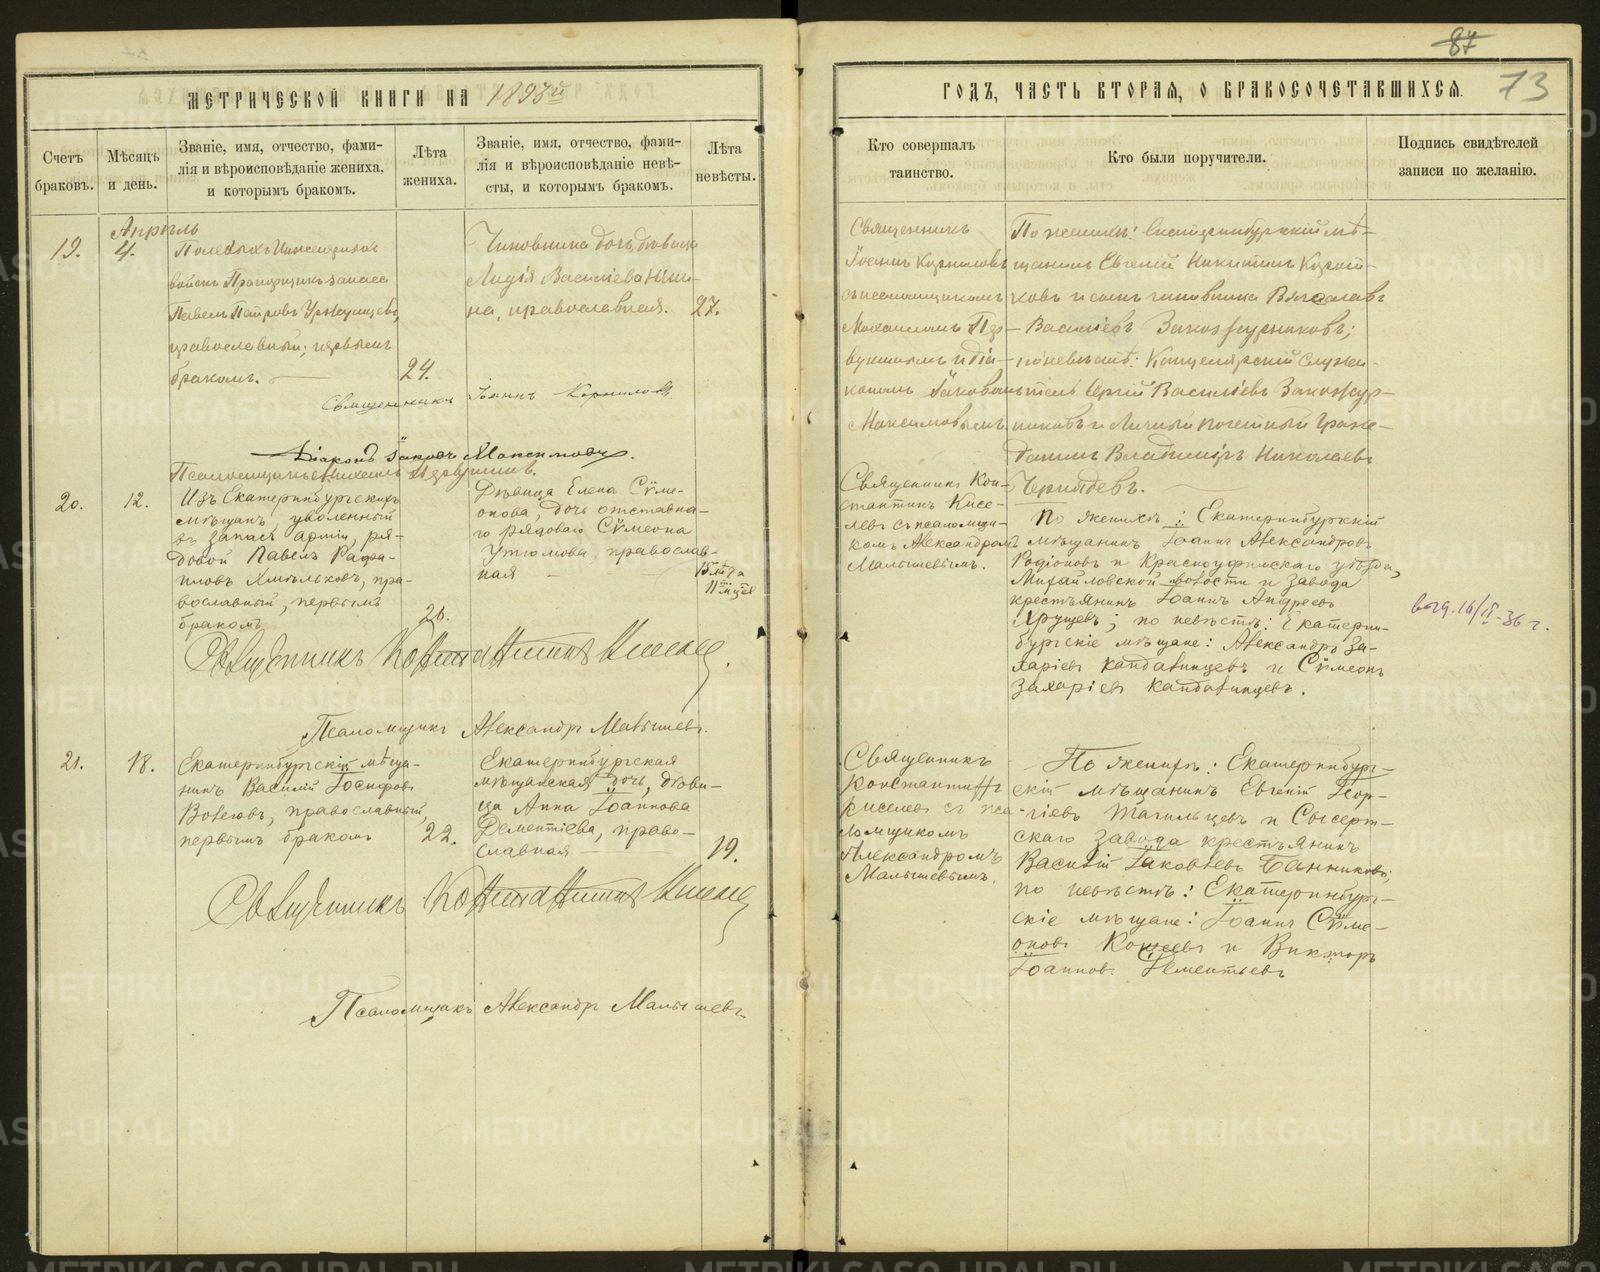 87
73
МЕТРИЧЕСКОЙ КНИГИ НА 1893й
ГОДЪ, ЧАСТЬ ВТОРАЯ, О БРАКОСОЧЕТАВШИХСЯ.
Счетъ
браковъ.
Мѣсяцъ
и день.
Званіе, имя, отчество, фами-
лія и вѣроисповѣданіе жениха,
и которымъ бракомъ.
Лѣта
жениха.
Званіе, имя, отчество, фами-
лія и вѣроисповѣданіе невѣ-
сты, и которымъ бракомъ.
Лѣта
невѣсты.
Кто совершалъ
таинство.
Кто были поручители.
Подпись свидѣтелей
записи по желанію.
Апрѣль
19.
4.
Инженерныхъ
войскъ Прапорщикъ запаса
Павелъ Петровъ
православный, первымъ
бракомъ.
24.
Чиновника дочь дѣвица
Лидія Василіева
на, православная.
27.
Священникъ
Іоаннъ Корниловъ
съ псаломщикомъ
Михаиломъ
и діа-
кономъ Іаковомъ
Максимовымъ
По женихѣ: Екатеринбургскій мѣ-
щанинъ Евгеній Никитинъ
ковъ и сынъ чиновника Вячеславъ
Василіевъ Закожурниковъ;
по невѣстѣ: Канцелярскій служи-
тель Сергій Василіевъ Закожур-
никовъ и Личный почетный Граж-
данинъ Владиміръ Николаевъ
Священникъ Іоаннъ Корниловъ
Діаконъ Іаковъ Максимовъ.
Псаломщикъ Михаилъ
20.
12.
Изъ Екатеринбургскихъ
мѣщанъ, уволенный
въ запасъ арміи, ря-
довой Павелъ Рафа-
иловъ Хмѣльковъ, пра-
вославный, первымъ
бракомъ
26.
Дѣвица Елена Сѵме-
онова, дочь отставна-
го рядоваго Сѵмеона
Утюмова, православ-
ная
Священникъ Кон-
стантинъ Кисе-
левъ съ псаломщи-
комъ Александромъ
Малышевымъ.
По женихѣ: Екатеринбургскій
мѣщанинъ Іоаннъ Александровъ
Родіоновъ и Красноуфимскаго уѣзда,
Михайловской волости и завода
крестьянинъ Іоаннъ Андреевъ
Ярушевъ; по невѣстѣ: Екатерин-
бургскіе мѣщане: Александръ За-
харіевъ Кандавинцевъ и Сѵмеонъ
Захаріевъ Кандавинцевъ.
Священникъ Константинъ Киселевъ.
Псаломщикъ Александръ Малышевъ.
21.
18.
Екатеринбургскій мѣща-
нинъ Василій Іосифовъ
православный,
первымъ бракомъ
22.
Екатеринбургская
мѣщанская дочь, дѣви-
ца Анна Іоаннова
Дементіева, право-
славная
19.
Священникъ
Константинъ
Киселевъ съ пса-
ломщикомъ
Александромъ
Малышевымъ.
По женихѣ: Екатеринбург-
скій мѣщанинъ Евгеній Геор-
гіевъ Тагильцевъ и Сысерт-
скаго завода крестьянинъ
Василій Іаковлевъ Банниковъ;
по невѣстѣ: Екатеринбург-
скіе мѣщане: Іоаннъ Сѵме-
оновъ и Викторъ
Іоанновъ Дементьевъ
Священникъ Константинъ Киселевъ
Псаломщикъ Александръ Малышевъ
METRIKI.GASO-URAL.RU